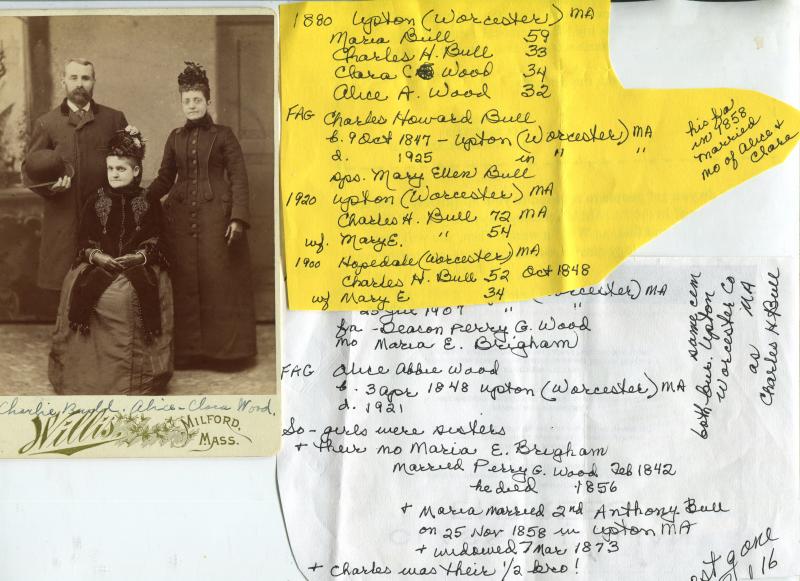 1880 Upton (Worcester) MA
Maria Bull 59
Charles H. Bull 33
Clara C Wood 34
Alice A. Wood 32
FAG Charles Howard Bull
b. 9 Oct 1847 - Upton (Worcester) MA
d. 1925 in " "
sps. Mary Ellen Bull
1920 Upton (Worcester) MA
Charles H. Bull 72 MA
wf. Mary E. " 54
1900 Hopedale (Worcester) MA
Charles H. Bull 52 Oct 1848
wf Mary E 34
his fa
in 1858
married
mo of Alice &
Clara
(Worcester) MA
1907 " "
fa - Deacon Perry G. Wood
mo Maria E. Brigham
FAG Alice Abbie Wood
b. 3 Apr 1848 Upton (Worcester) MA
d. 1921
So - girls were sisters
+ their mo Maria E. Brigham
married Perry G. Wood Feb 1842
he died 1856
+ Maria married 2nd Anthony Bull
on 25 Nov 1858 in Upton MA
+ widowed 7 Mar 1873
+ Charles was their 1/2 bro!
same cem
both bur. Upton
Worcester Co
MA
as
Charles H Bull
gone
16
Charlie Budd. Alice - Clara Wood.
Willis.
Milford,
Mass.